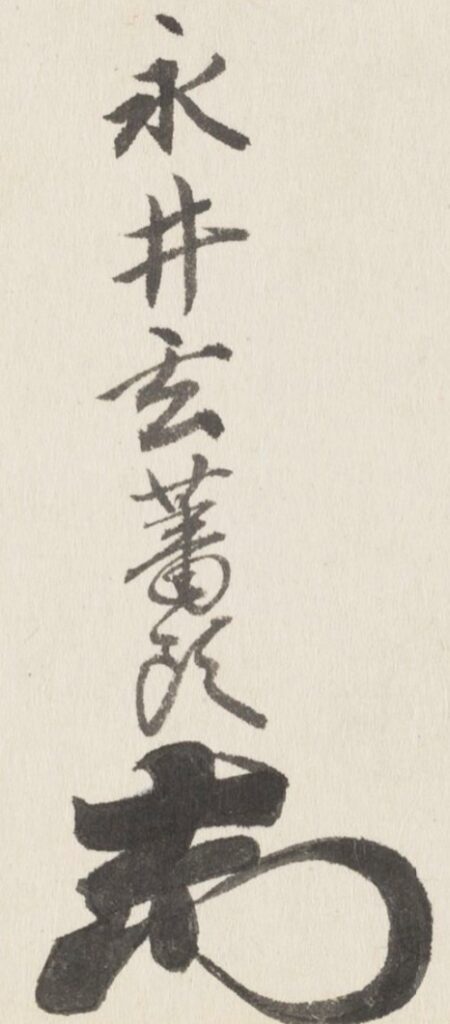 永井玄蕃頭